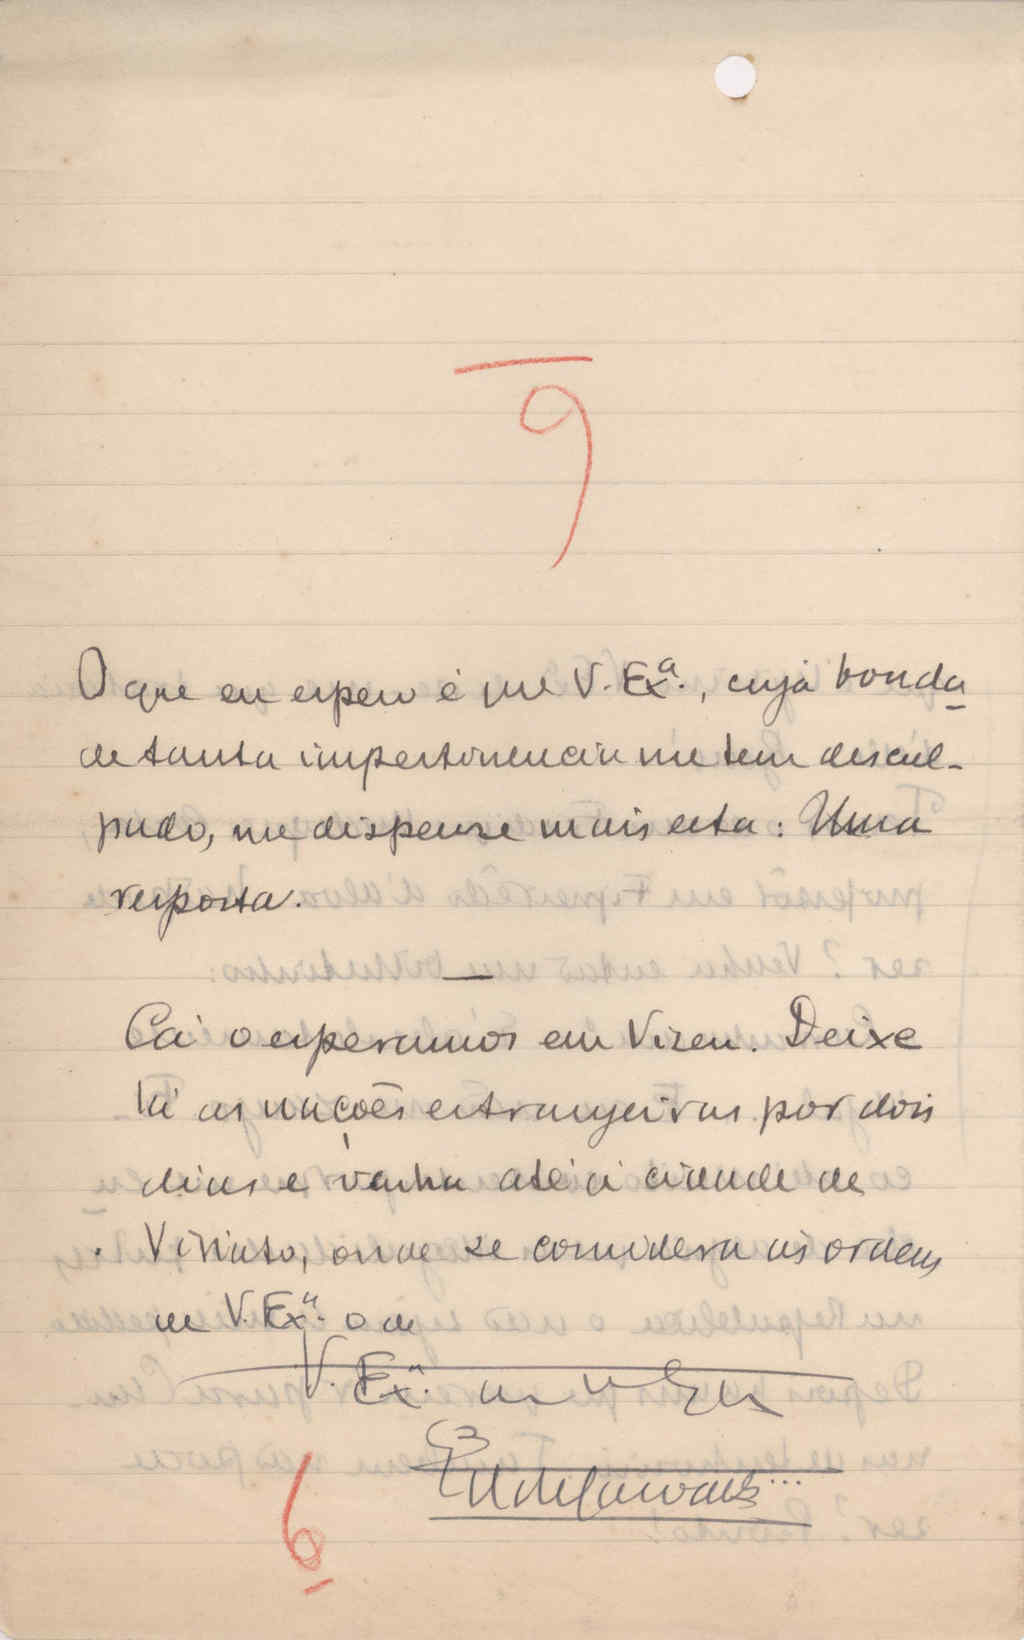 9
O que eu espero é que V. Exª., cuja bonda
de tanta impertinencia me tem descul-
pado, me dispense mais esta: Uma
resposta.
Cá o esperamos em Viseu. Deixe
lá as nações estrangeiras por dois
dias e venha até á cidade de
Viriato, onde se considera ás ordens
de V. Exª. o de
V. Exª.
6